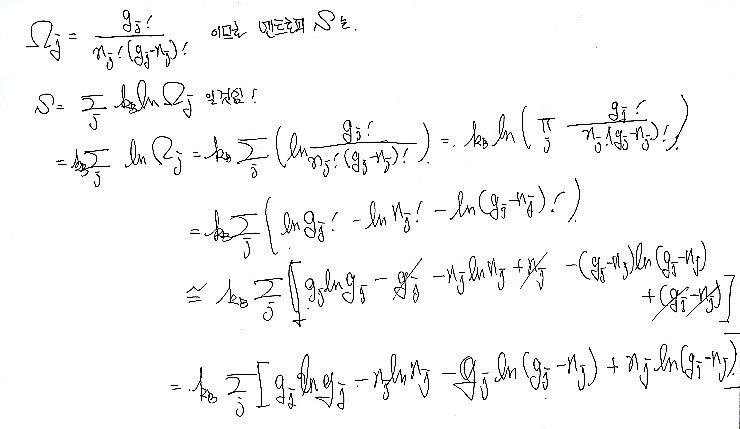 Ω_j = g_j! / n_j!(g_j-n_j)! 이므로 엔트로피 S는
S = Σ_j k_B ln Ω_j 일것임!
= k_B Σ_j ln Ω_j = k_B Σ_j (ln g_j! / n_j!(g_j-n_j)!) = k_B ln(π_j g_j! / n_j!(g_j-n_j)!)
= k_B Σ_j (ln g_j! - ln n_j! - ln(g_j-n_j)!)
≅ k_B Σ_j [g_j ln g_j - g_j - n_j ln n_j + n_j - (g_j-n_j) ln(g_j-n_j) + (g_j-n_j)]
= k_B Σ_j [g_j ln g_j - n_j ln n_j - g_j ln(g_j-n_j) + n_j ln(g_j-n_j)]